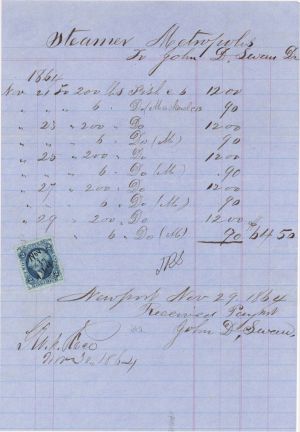 Steamer Metropolis
To John D. Swan Dr
1864
Nov 21 To 200 lbs Fish 6 12 00
" " 6 " Do (Mackerel) 90
" 23 " 200 " Do 12 00
" " 6 " Do (M) 90
" 25 " 200 " Do 12 00
" " 6 " Do (M) .90
" 27 " 200 " Do 12 00
" " 6 " Do (M) 90
" 29 " 200 " Do 12 00
" 6 " Do (M) 90 $64 50
Newport Nov 29, 1864
Received Paymt
John D. Swan
Nov 30 1864